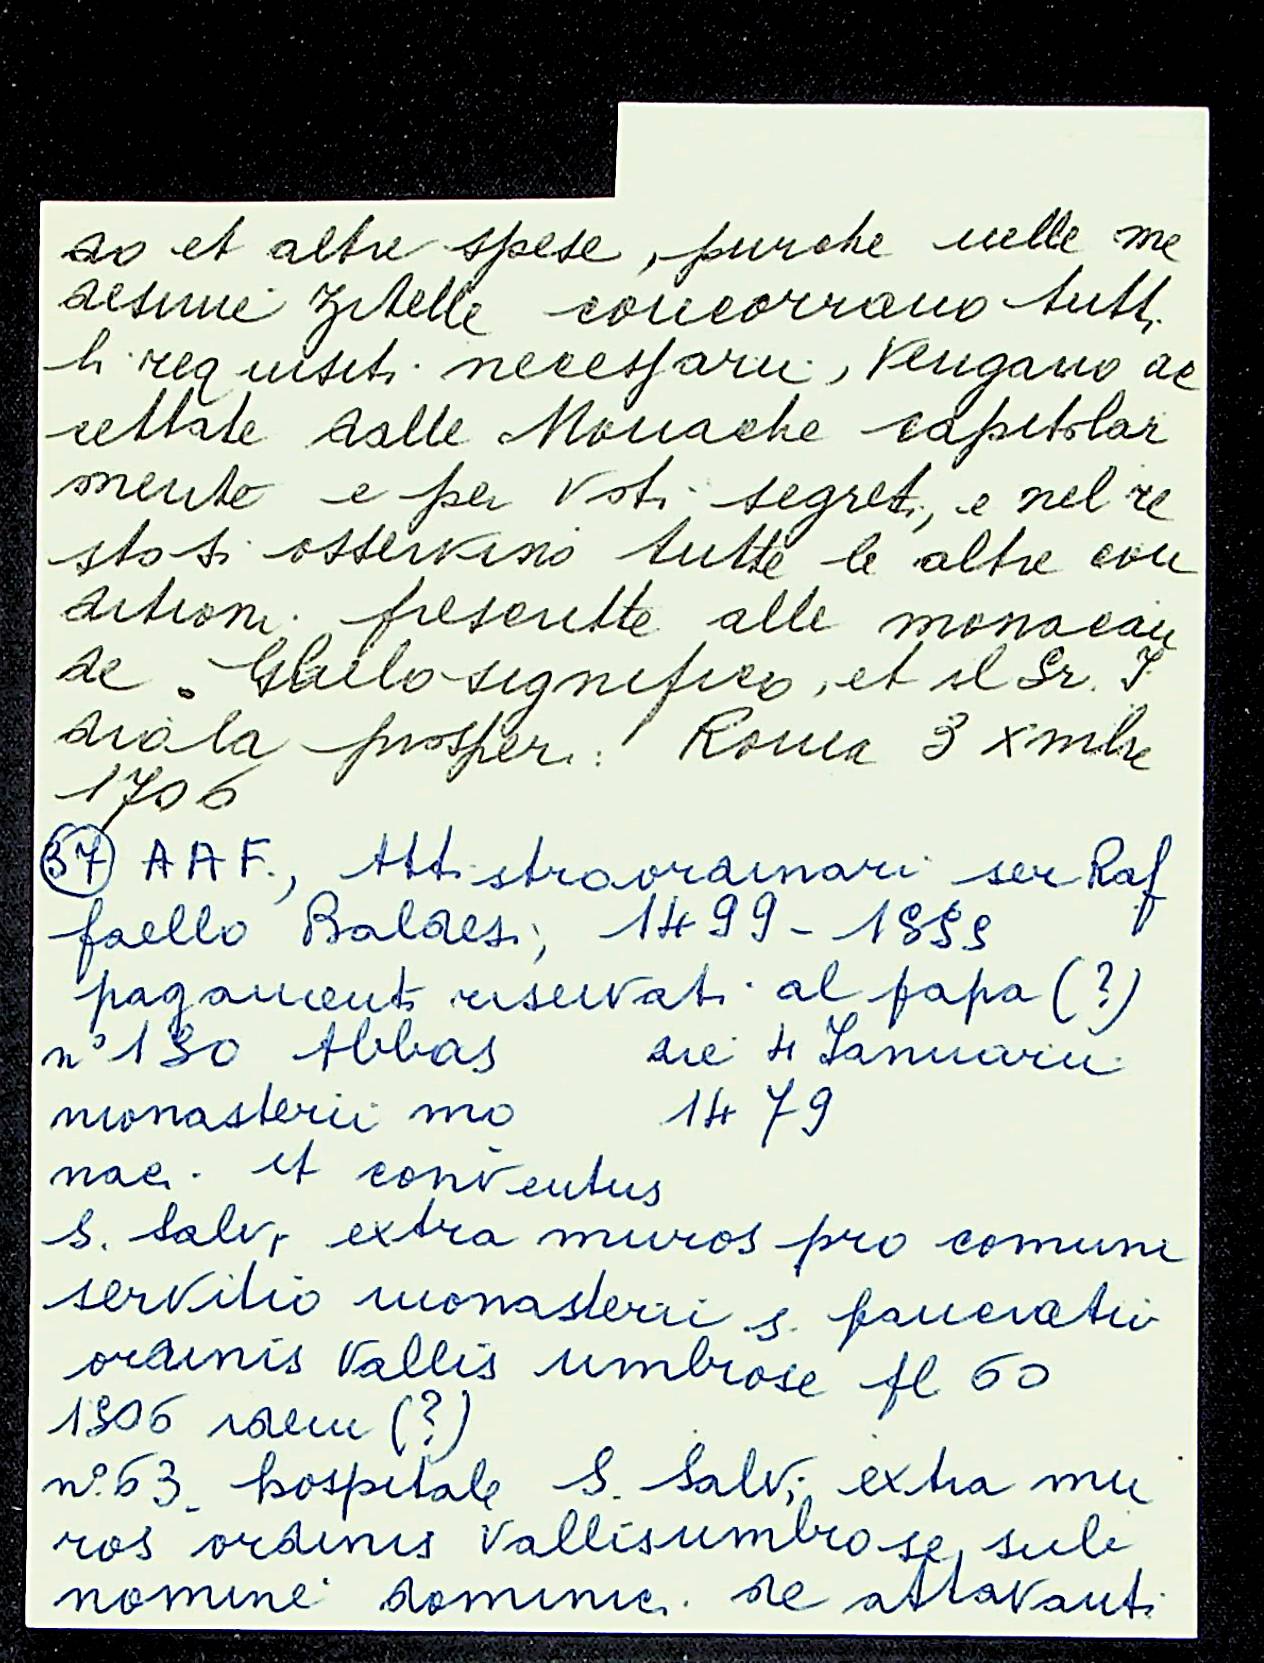 do et altre spese, purche nelle me
desime Zitelle concorrano tutti
li requisiti necessarii, Vengano ac
cettate dalle Monache capitolar
mente e per Voti segreti, e nel re
sto si osservino tutte le altre con
ditioni prescritte alle monacan
de. Glielo significo, et il Sr. I
dio la prosperi: Roma 3 xmbre
1706
37 AAF., Atti straordinari ser Raf
faello Baldesi, 1499-1555
pagamenti riservati al papa (?)
n° 150 Abbas die 4 Januarii
monasterii mo 1479
nac. et conventus
S. Salvi extra muros pro comuni
servitio monasterii s. pancratii
ordinis Vallis umbrose fl 60
1506 idem (?)
n° 63 hospitale S. Salvi extra mu
ros ordinis Vallisumbrose sub
nomine dominici de attavanti